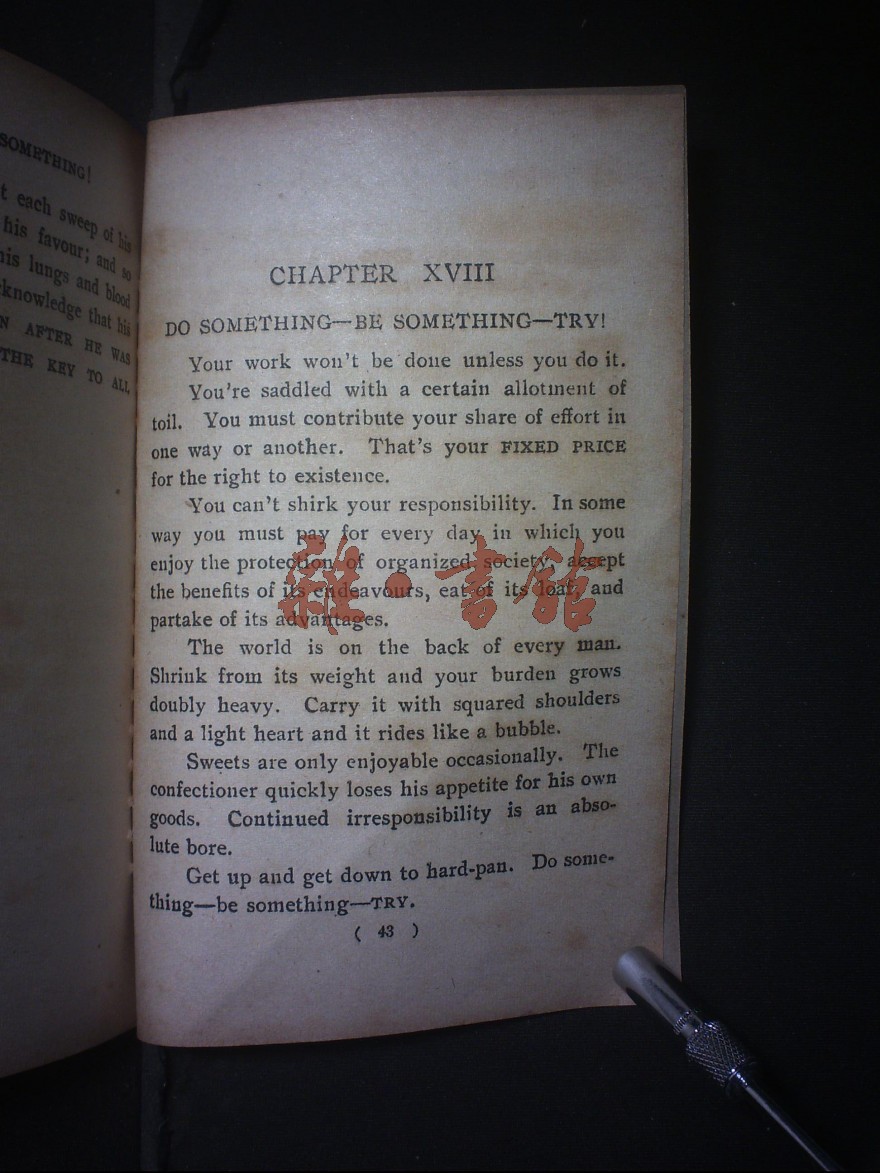 SOMETHING!
t each sweep of his
his favour; and so
his lungs and blood
cknowledge that his
N AFTER HE WAS
THE KEY TO ALL
CHAPTER XVIII
DO SOMETHING—BE SOMETHING—TRY!
Your work won't be done unless you do it.
You're saddled with a certain allotment of
toil. You must contribute your share of effort in
one way or another. That's your FIXED PRICE
for the right to existence.
You can't shirk your responsibility. In some
way you must pay for every day in which you
enjoy the protection of organized society, accept
the benefits of its endeavours, eat of its loaf, and
partake of its advantages.
The world is on the back of every man.
Shrink from its weight and your burden grows
doubly heavy. Carry it with squared shoulders
and a light heart and it rides like a bubble.
Sweets are only enjoyable occasionally. The
confectioner quickly loses his appetite for his own
goods. Continued irresponsibility is an abso-
lute bore.
Get up and get down to hard-pan. Do some-
thing—be something—TRY.
( 43 )
雜·書館